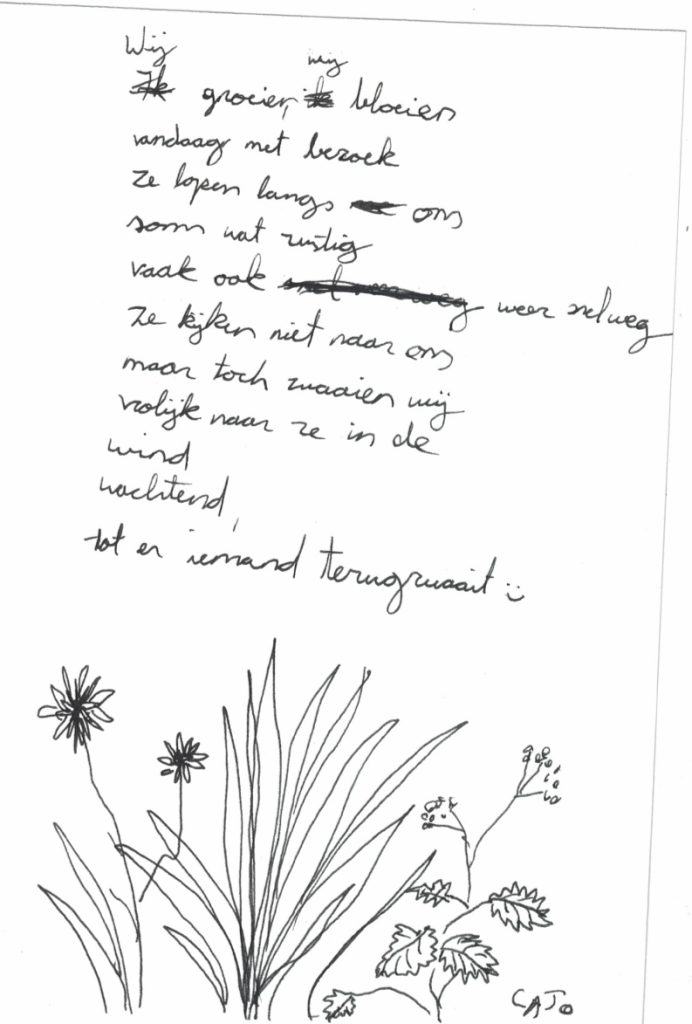 Wij wij
Ik groeien, ik bloeien
vandaag met bezoek
ze lopen langs ons
soms wat rustig
vaak ook weer snel weg
ze kijken niet naar ons
maar toch zwaaien wij
vrolijk naar ze in de
wind
wachtend,
tot er iemand terugzwaait :)
CATO